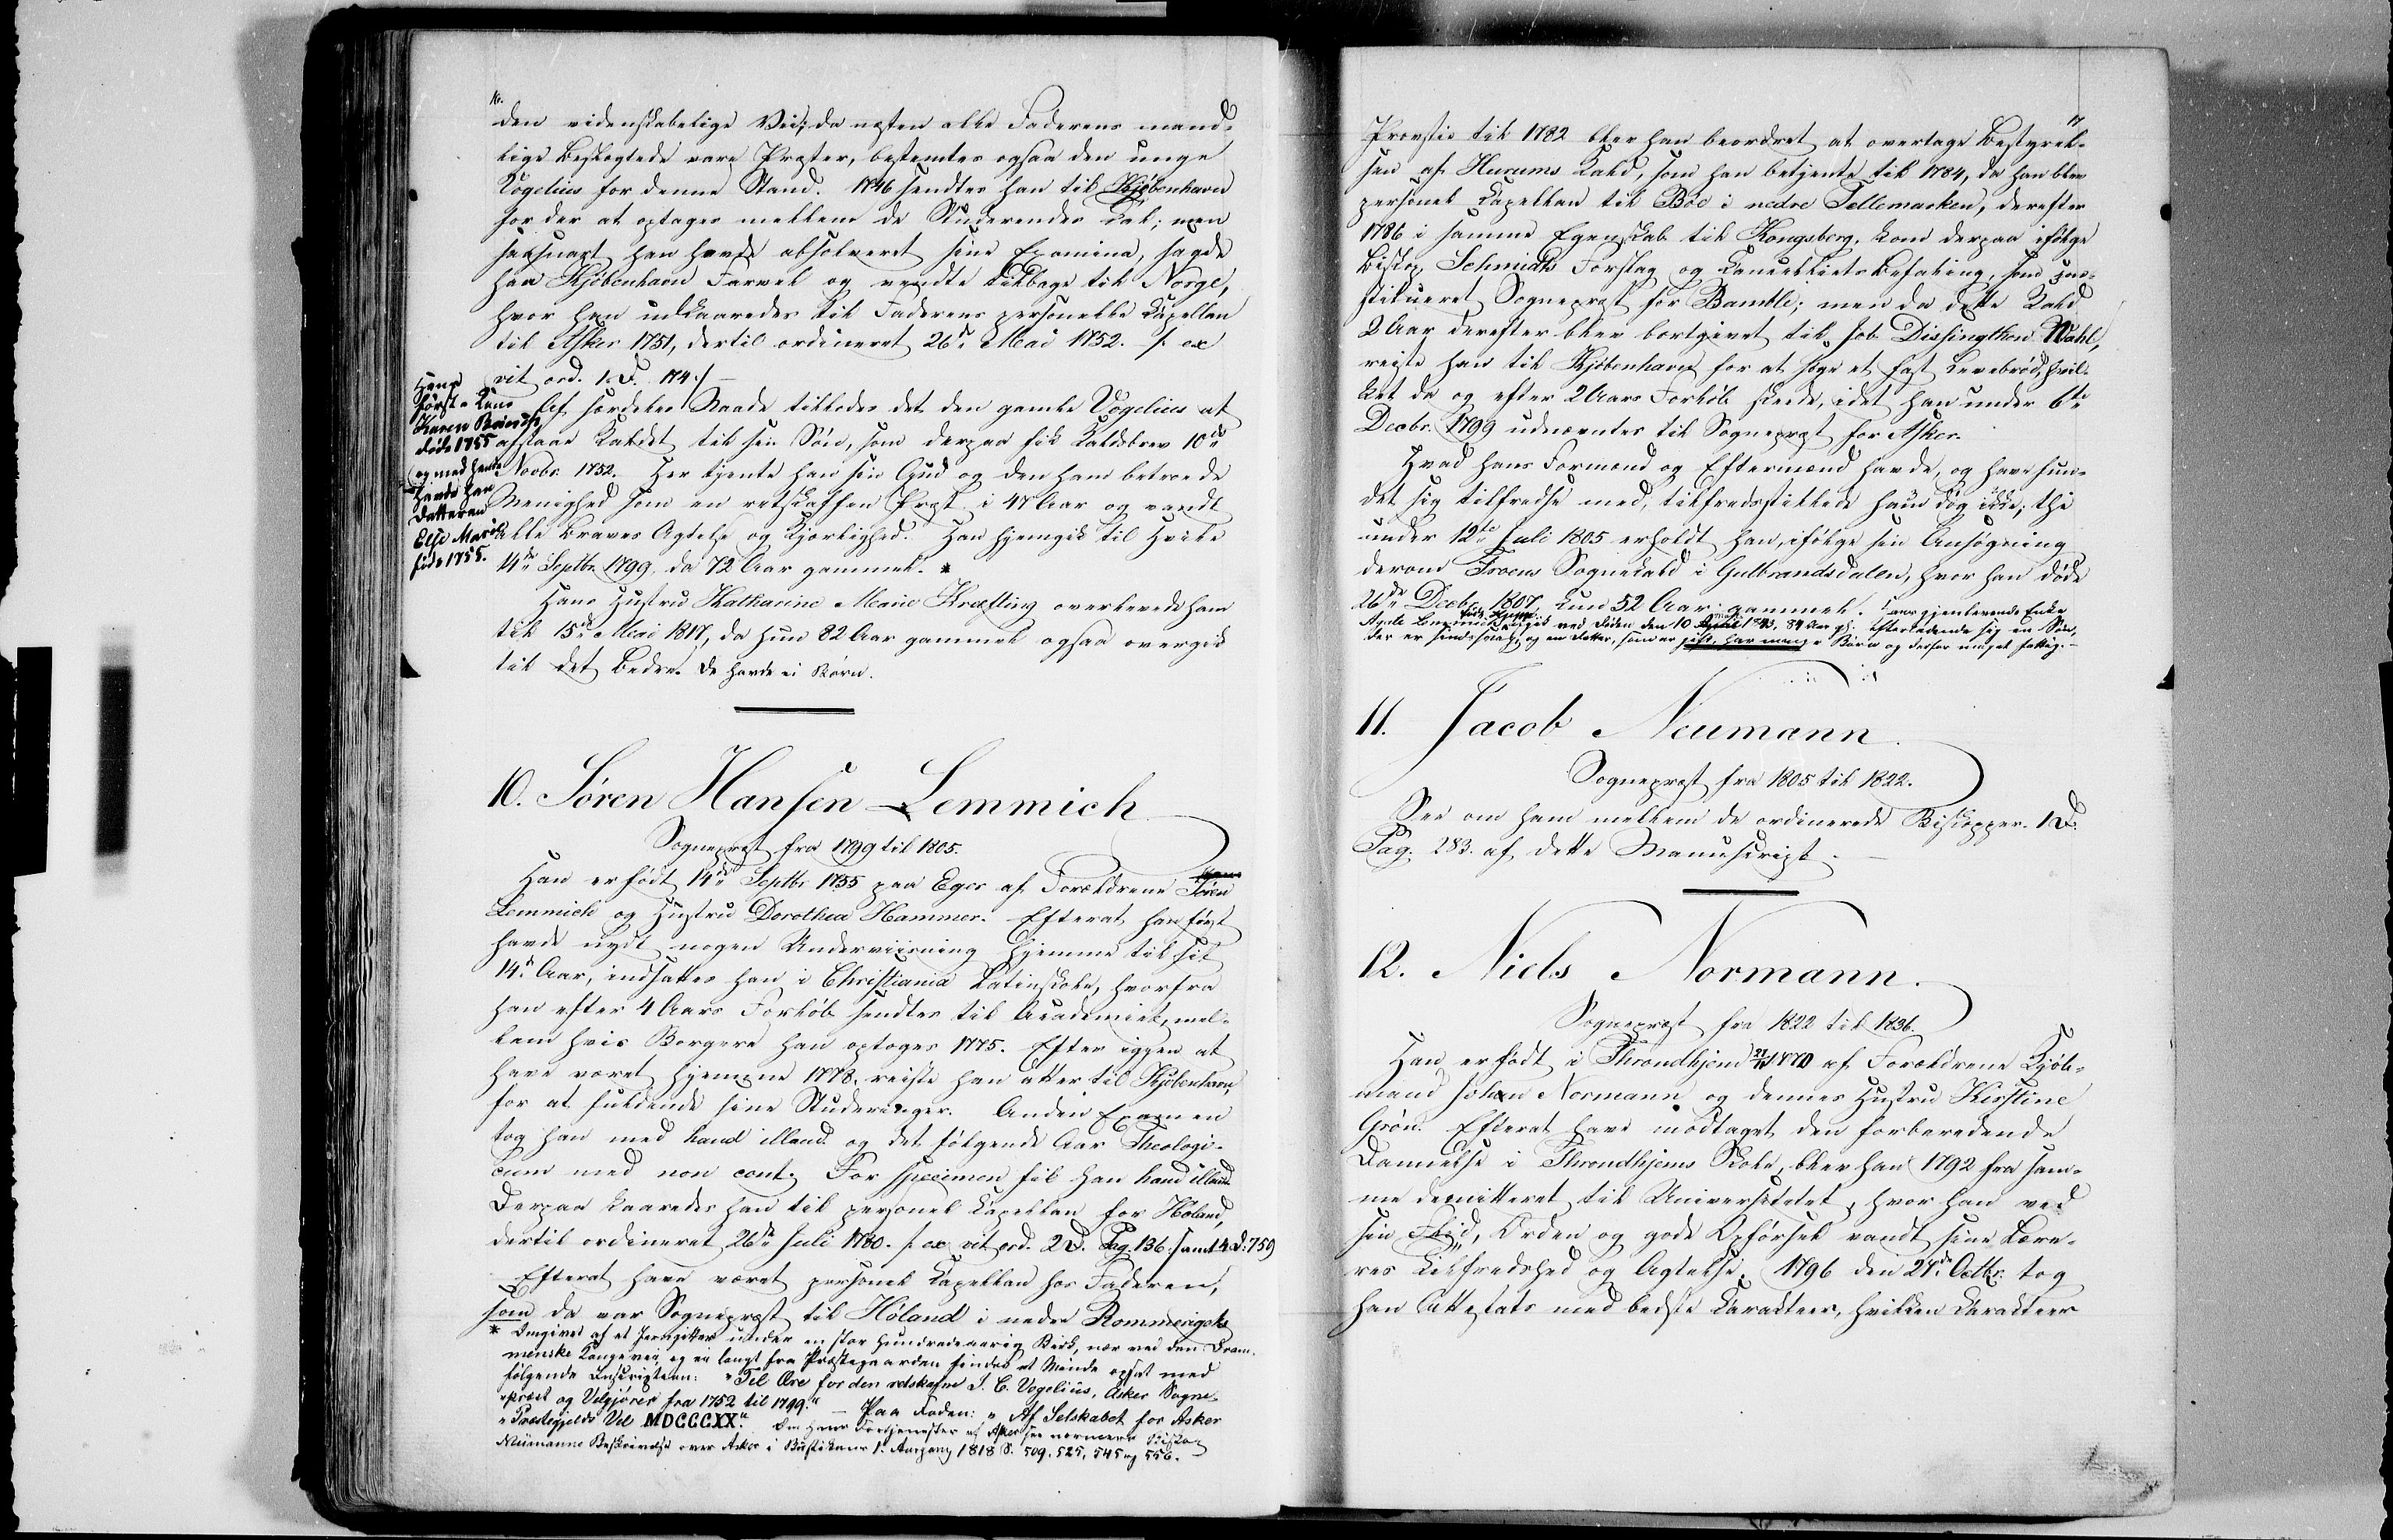 16.
den videnskabelige Vei; da næsten alle Faderens mand-
lige Beslægtede vare Præster, bestemtes ogsaa den unge
Vogelius for denne Stand. 1746 sendtes han til Kjøbenhavn
for der at optages mellem de Studerendes Tal; men
saasnart han havde absolveret sine Examina, sagde
han Kjøbenhavn Farvel og vendte tilbage til Norge,
hvor han udkaaredes til Faderens personelle Capellan
til Asker 1751, dertil ordineret 26de Mai 1752. /: ex
vit. ord. 1.D. 174:/
Af særdeles Naade tillodes det den gamle Vogelius at
afstaae Kaldet til sin Søn, som derpaa fik Kaldsbrev 10de
Novbr. 1752. Her tjente han sin Gud og den ham betroede
Menighed som en retskaffen Præst i 47 Aar og vandt
alle Braves Agtelse og Kjærlighed. Han hjemgik til Hvile
14de Septbr. 1799, da 72 Aar gammel. *
Hans Hustrue Katharine Marie Kræfting overlevede ham
til 15de Mai 1817, da hun 82 Aar gammel ogsaa overgik
til det Bedre. De havde ei Børn.
Hans
første Kone
Karen
døde 1755
og med hende
havde han
Datteren
Else Marie
født 1755.
10. Søren Hansen Lemmich
Sognepræst fra 1799 til 1805.
Han er født 14de Septbr 1755 paa Eger af Forældrene Søren
Lemmich og Hustru Dorothea Hammer. Efterat han først
havde nydt nogen Underviisning hjemme til sit
14de Aar, indsattes han i Christiania Latinskole, hvorfra
han efter 4 Aars Forløb sendtes til Academiet, mel-
lem hvis Borgere han optoges 1775. Efter igjen at
have været hjemme 1778, reiste han atter til Kjøbenhavn,
for at fuldende sine Studeringer. Anden Examen
tog han med haud illaud. og det følgende Aar Theologi-
cum med non cont. For specimen fik han haud illaud.
Derpaa kaaredes han til personel Capellan for Høland,
dertil ordineret 26de Juli 1780. /: ex vit. ord. 2 D. Pag. 136. samt 4 D. 759
Efterat have været personel Capellan hos Faderen,
som da var Sognepræst til Høland i nedre Rommerigets
* Omgivet af et Jerngitter under en stor hundredeaarig Birk, nær ved den Dram-
menske Kongevei, og ei langt fra Præstegaarden findes et Minde opsat med
følgende Inscription: "Til Ære for den retskafne J. C. Vogelius, Asker Sogne-
"præst og Velgjører fra 1752 til 1799." — Paa Foden: "Af Selskabet for Asker
"Præstegjelds Vel MDCCCXX." Om hans Fortjenester af Asker see nærmere Biskop
Neumanns Beskrivelse over Asker i Budstikkens 1. Aargang 1818 S. 509. 525, 545 og 556.
17
Provstie til 1782 blev han beordret at overtage Bestyrel-
sen af Hurums Kald, som han betjente til 1784, da han blev
personel Capellan til Bøe i nedre Tellemarken, derefter
1786 i samme Egenskab til Kongsberg, kom derpaa ifølge
Biskop Schmidts Forslag og Cancelliets Befaling, som con-
stitueret Sognepræst for Bamble; men da dette Kald
2 Aar derefter blev bortgivet til Job Dissingthon Wahl,
reiste han til Kjøbenhavn for at søge et fast Levebrød, hvil-
ket da og efter 2 Aars Forløb skede, idet han under 6te
Decbr. 1799 udnævntes til Sognepræst for Asker.
Hvad hans Formænd og Eftermænd havde, og have fun-
det sig tilfredse med, tilfredsstillede ham dog ikke; thi
under 12te Juli 1805 erholdt han, ifølge sin Ansøgning
derom Froens Sognekald i Gulbrandsdalen, hvor han døde
26de Decbr. 1807, kun 52 Aar gammel. Hans gjenlevende Enke
ved Døden den 10 1843, 84 Aar gl. efterladende sig en Søn,
der er sindssvag, og en Datter, som er gift, har mange Børn og derfor meget fattig. —
11. Jacob Neumann
Sognepræst fra 1805 til 1822.
See om ham mellem de ordinerede Biskopper. 1 D.
Pag. 283. af dette Manuscript. —
12. Niels Normann.
Sognepræst fra 1822 til 1836.
Han er født i Throndhjem 1770 af Forældrene Kjøb-
mand Johan Normann og dennes Hustru Kirstine
Grøn. Efterat have modtaget den forberedende
Dannelse i Throndhjems Skole, blev han 1792 fra sam-
me demitteret til Universitetet, hvor han ved
sin Flid, Orden og gode Opførsel vandt sine Lære-
res Tilfredshed og Agtelse. 1796 den 27de Octbr. tog
han Attestats med bedste Karakteer, hvilken Karakteer